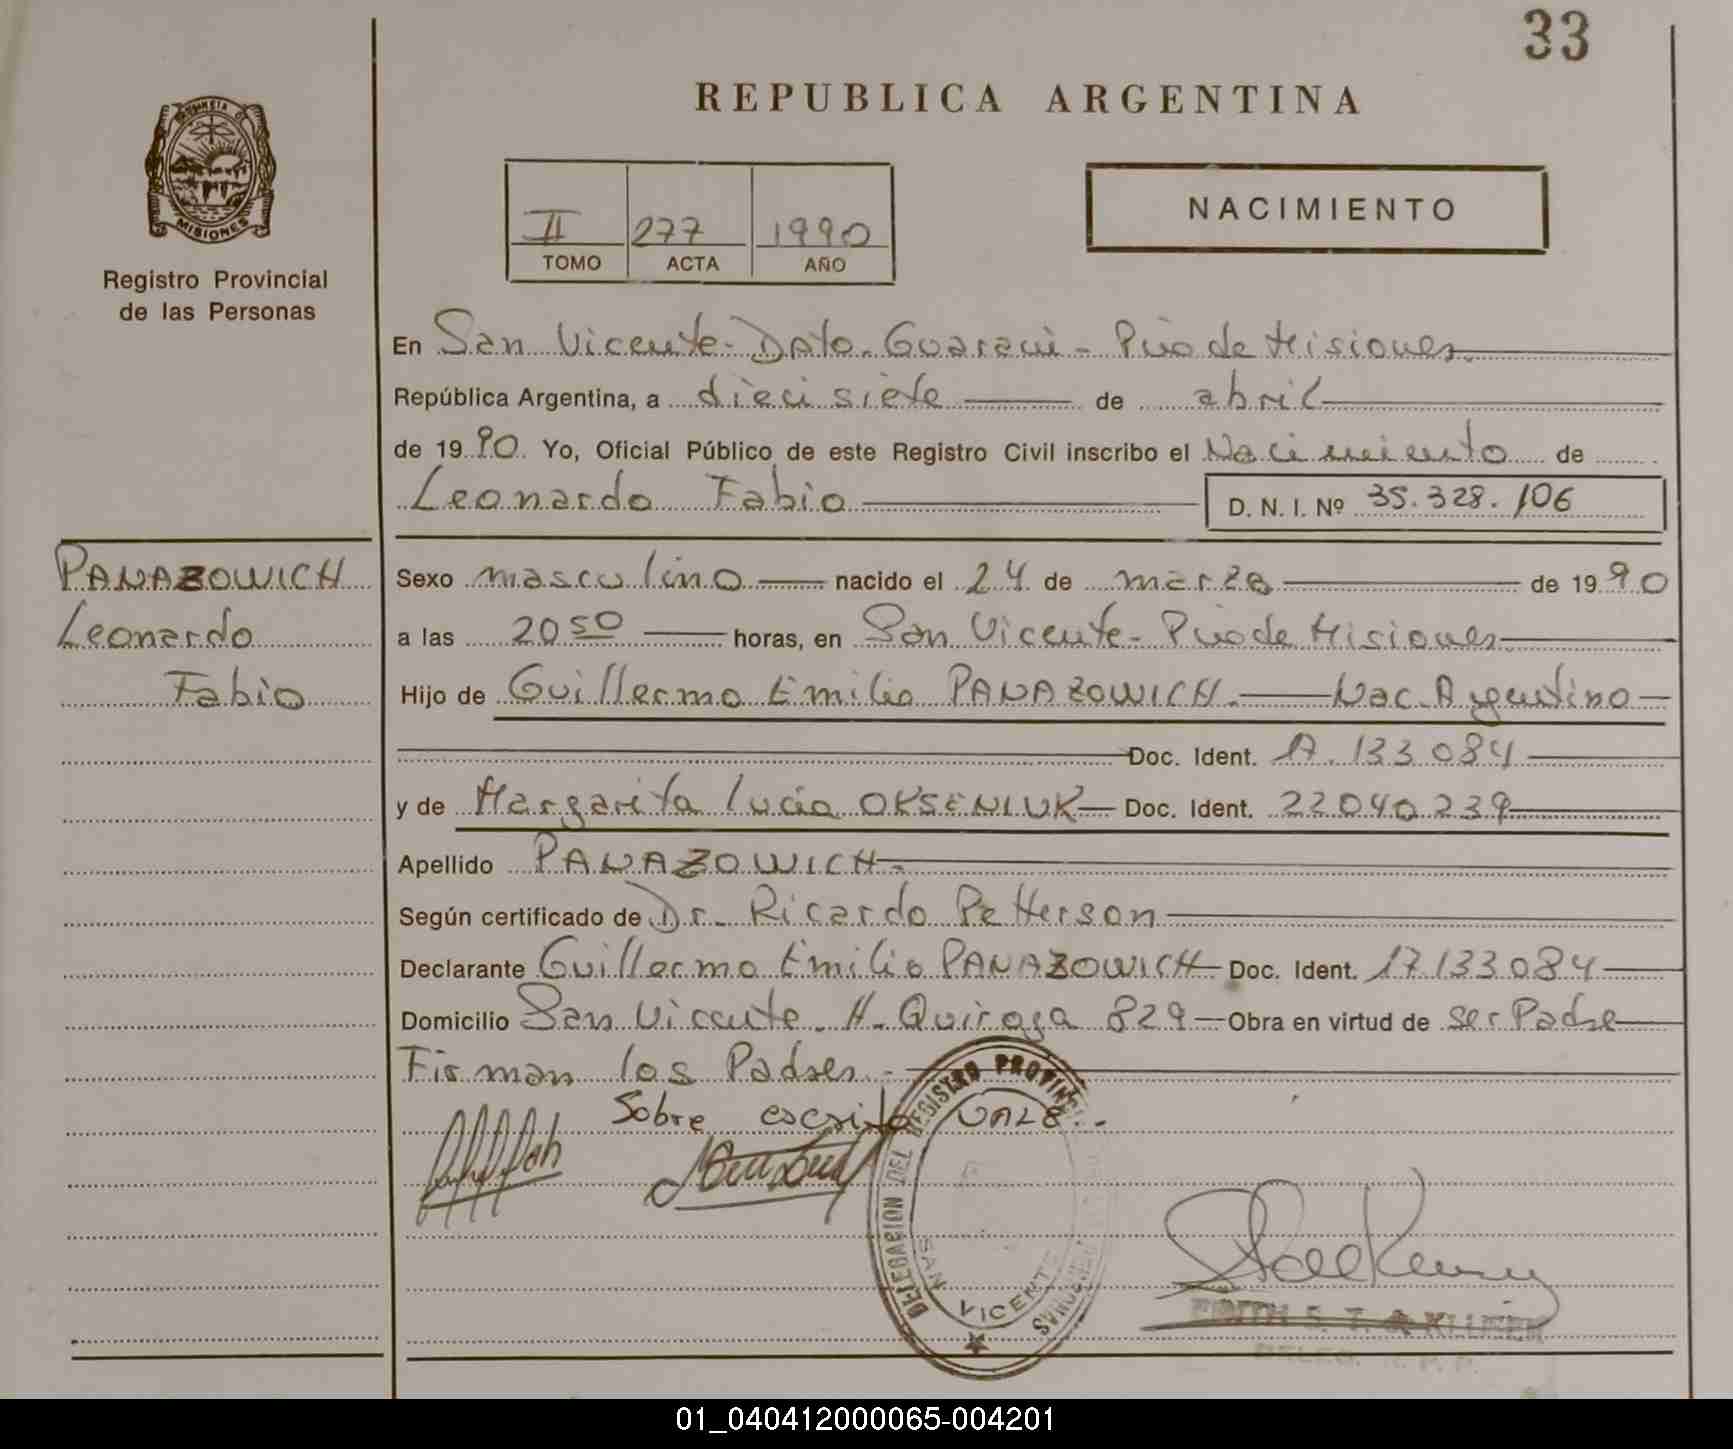 33
REPUBLICA ARGENTINA
MISIONES
Registro Provincial
de las Personas
II 277 1990
TOMO ACTA AÑO
NACIMIENTO
En San Vicente - Dpto. Guaraní - Pvia de Misiones.
República Argentina, a dieci siete de abril
de 1990 Yo, Oficial Público de este Registro Civil inscribo el Nacimiento de
Leonardo Fabio D. N. I. Nº 35.328.106
PANAZOWICH
Leonardo
Fabio
Sexo masculino nacido el 24 de marzo de 1990
a las 20 50 horas, en San Vicente - Pvia de Misiones
Hijo de Guillermo Emilio PANAZOWICH. Nac. Argentino
Doc. Ident. 17.133.084
y de Margarita Lucia OKSENIUK Doc. Ident. 22040.239
Apellido PANAZOWICH.
Según certificado de Dr. Ricardo Petterson
Declarante Guillermo Emilio PANAZOWICH Doc. Ident. 17.133.084
Domicilio San Vicente. H. Quiroga 829 Obra en virtud de ser Padre
Firman los Padres.
Sobre escrito VALE..
DELEGACION DEL REGISTRO PROVINCIAL
SAN VICENTE
DELEG. R. P. P.
01_040412000065-004201